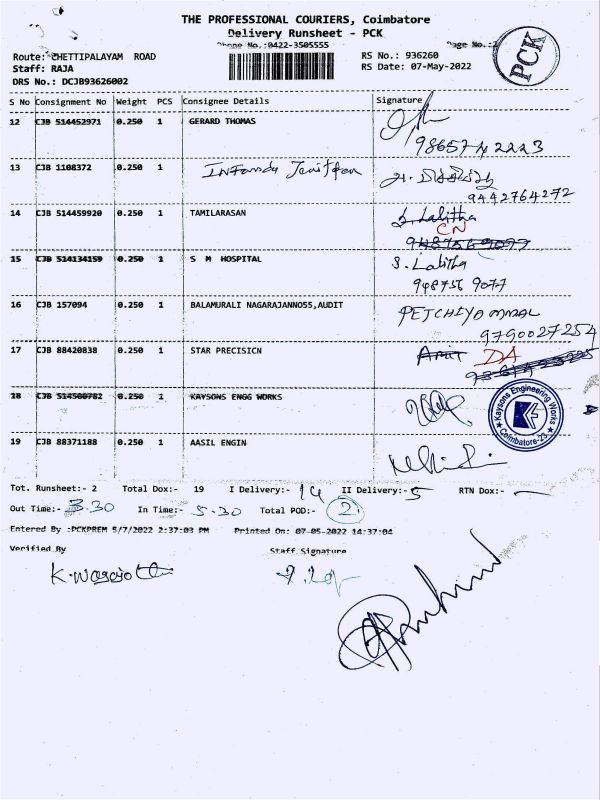 THE PROFESSIONAL COURIERS, Coimbatore
Delivery Runsheet - PCK
Phone No.:0422-3505555 Page No.:2
PCK
Route: CHETTIPALAYAM ROAD RS No.: 936260
Staff: RAJA RS Date: 07-May-2022
DRS No.: DCJB93626002
S No Consignment No Weight PCS Consignee Details Signature
12 CJB 514452971 0.250 1 GERARD THOMAS
98657 42223
13 CJB 1108372 0.250 1
9442764272
14 CJB 514459920 0.250 1 TAMILARASAN S. Lalitha
CN
15 CJB 514134159 0.250 1 S M HOSPITAL S. Lalitha
948756 9077
16 CJB 157094 0.250 1 BALAMURALI NAGARAJANNO55,AUDIT PETCHIYAMMAL
9790027254
17 CJB 88420838 0.250 1 STAR PRECISICN DA
18 CJB 514500782 0.250 1 KAYSONS ENGG WORKS
Kaysons Engineering Works
Coimbatore-23
19 CJB 88371188 0.250 1 AASIL ENGIN
Tot. Runsheet:- 2 Total Dox:- 19 I Delivery:- 14 II Delivery:- 5 RTN Dox:- —
Out Time:- 3.30 In Time:- 5.30 Total POD:- 2
Entered By :PCKPREM 5/7/2022 2:37:03 PM Printed On: 07-05-2022 14:37:04
Verified By Staff Signature